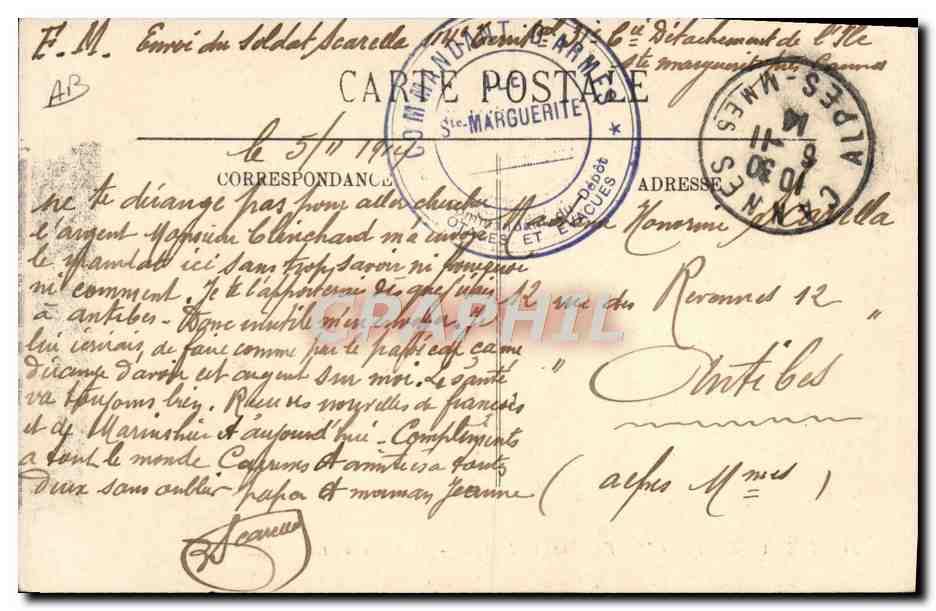 F. M. Envoi du Soldat Scarella 114e Territ 6ie Détachement de l'Ile
Ste Marguerite, Cannes
AB
CARTE POSTALE
COMMANDANT D'ARMES *
ILE
Ste-MARGUERITE
du Dépôt
OTAGES ET ÉVACUÉS
CANNES ALPES-MMES
10 30
6 -11
14
le 5/11 1914
CORRESPONDANCE
ADRESSE
ne te dérange pas pour aller chercher
l'argent Monsieur Clinchard m'a envoyé
le mandat ici sans trop savoir ni pourquoi
ni comment. Je te l'apporterai dès que j'irais
à antibes - Donc inutile m'en
lui écrivais, de faire comme par le passé car ça me
dérange d'avoir cet argent sur moi. La Santé
va toujours bien. Reçu des nouvelles de françois
et de Marius hier et aujourd'hui - Compliments
a tout le monde Caresses et amitiés a toutes
deux sans oublier papa et maman Jeanne
Scarella
Honorine Scarella
12 rue des Revennes 12
" "
Antibes
(alpes Mmes)
CPAPHIL